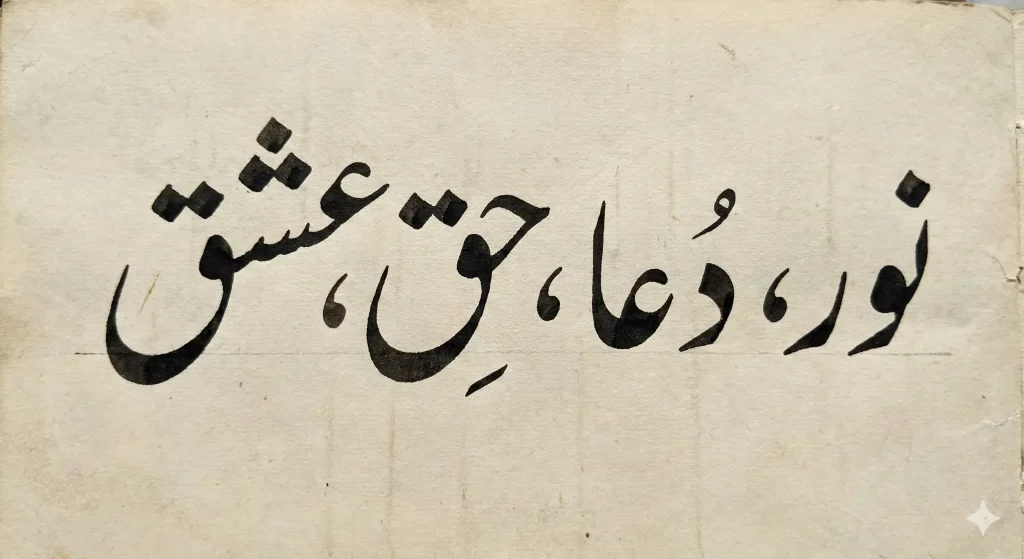 نور، دُعا، حقِ، عشق